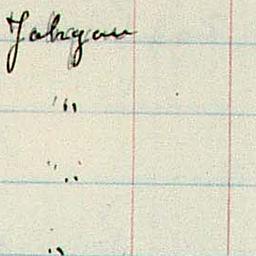 Jahrgau
"
"
"